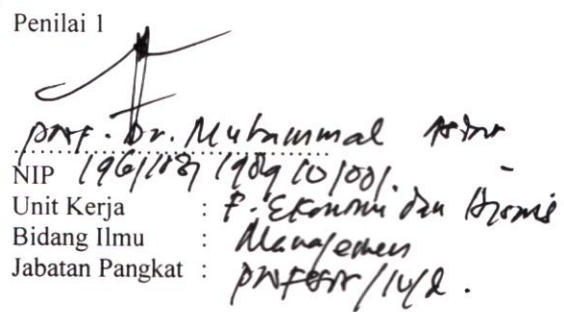 Penilai 1
Prof. Dr. Muhammad
NIP
Unit Kerja : F. Ekonomi dan Bisnis
Bidang Ilmu : Manajemen
Jabatan Pangkat : Profesor/IV/d.